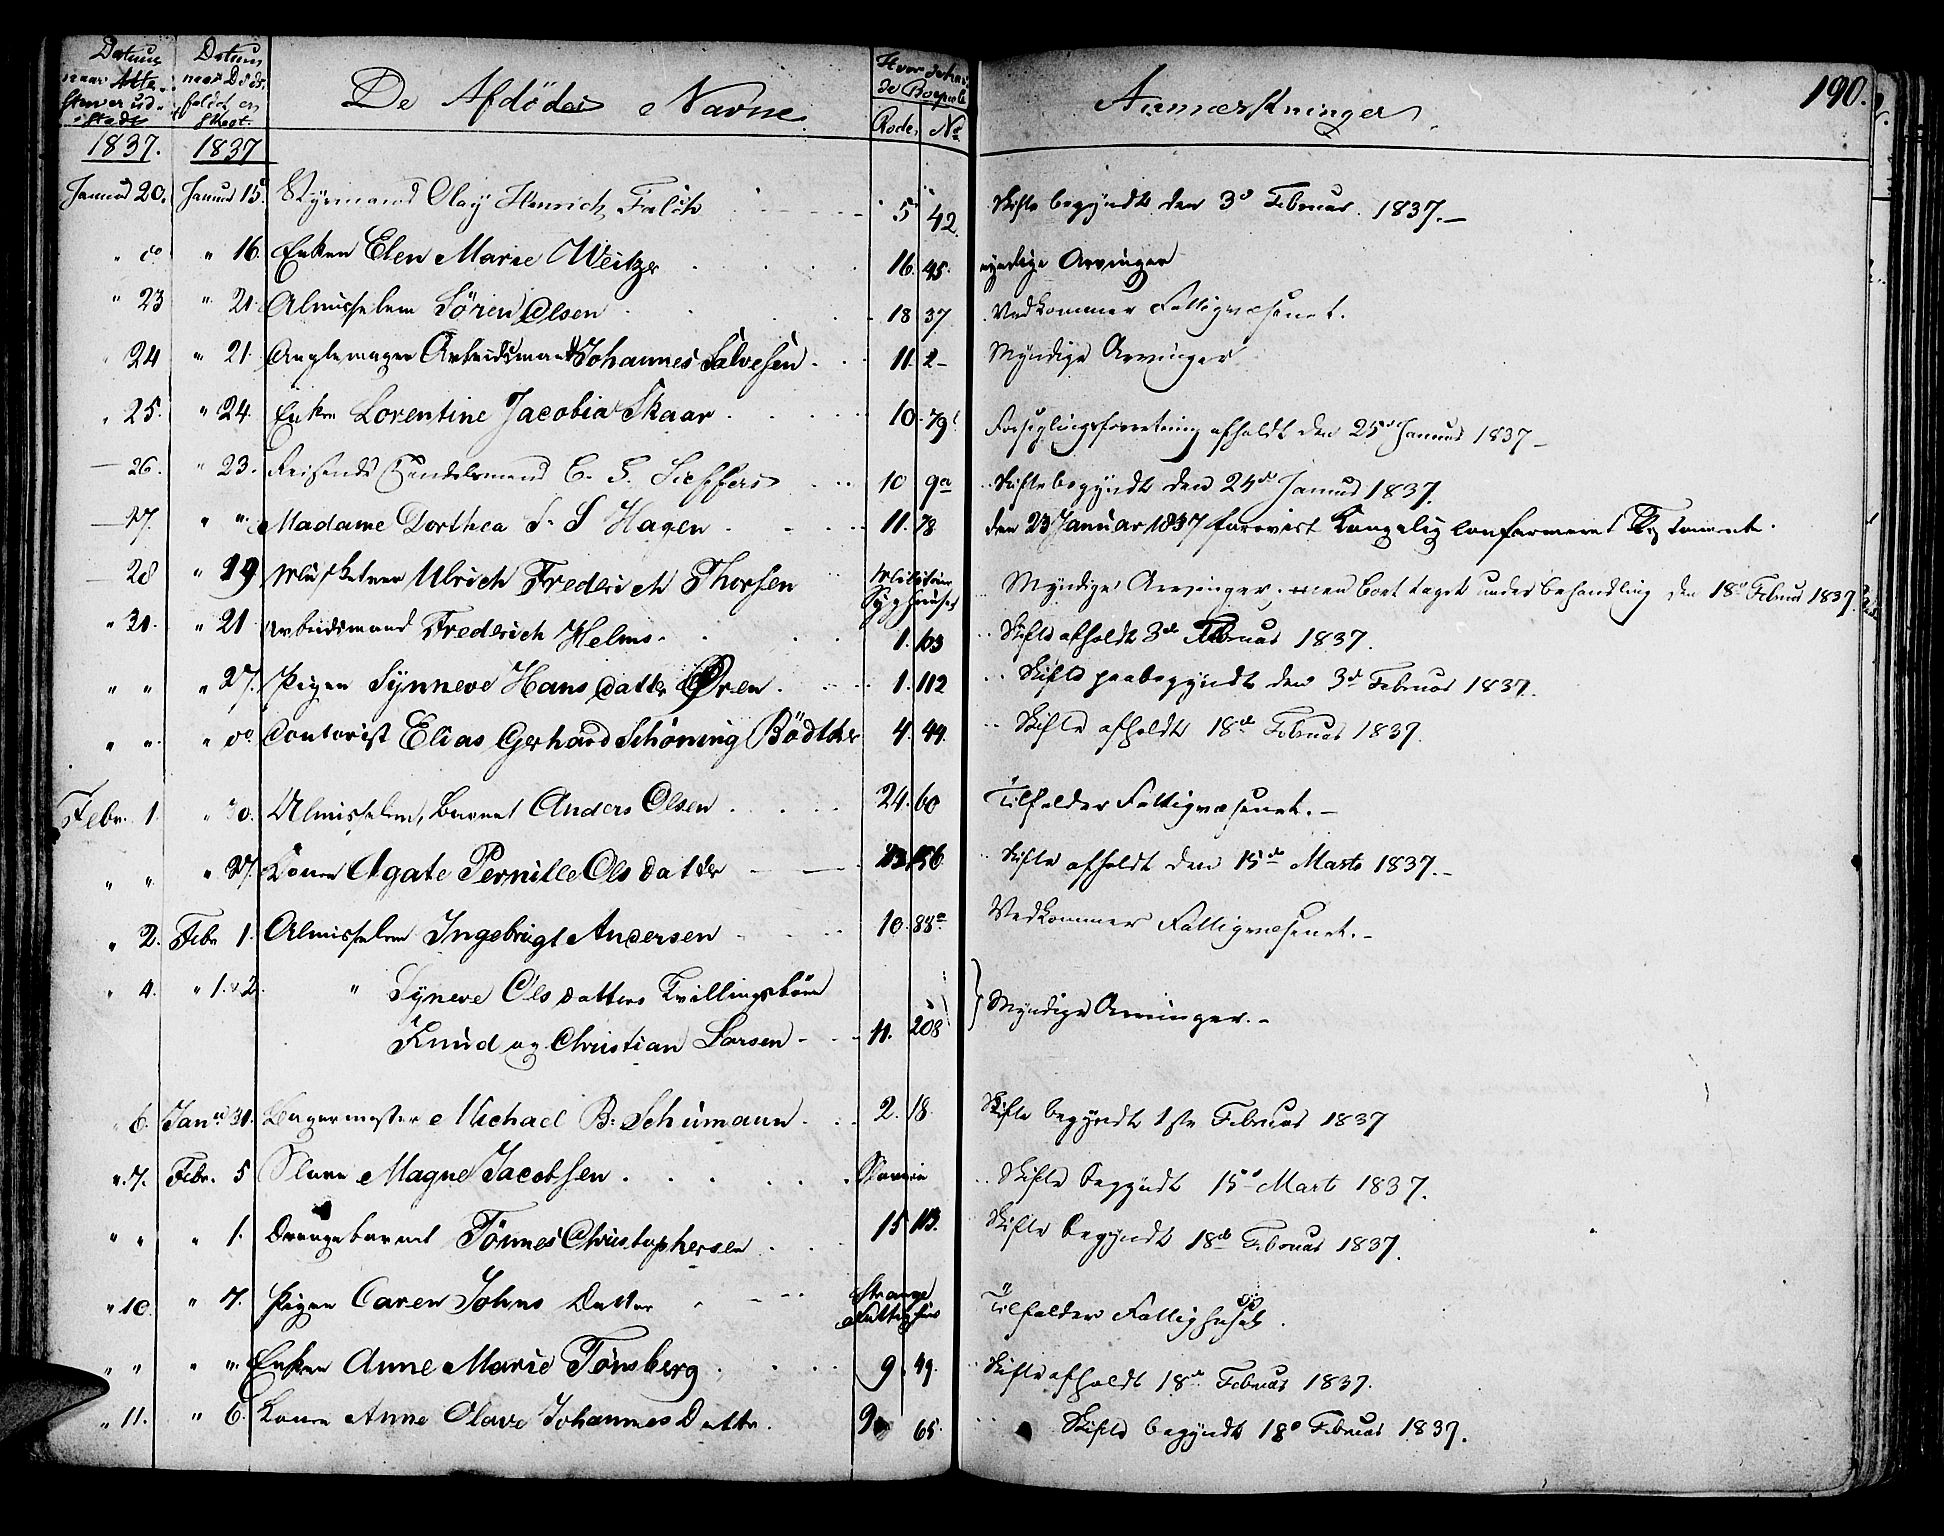 190.
Datum naar Atte- sten er ud- stedt
Datum naar Døds- faldet er skeet.
De Afdödes Navne
Hvor de havde Boepæl
Rode. No
Anmærkninger.
1837. 1837
Januar 20. Januar 15. Styrmand Olay Henrich Falch 5 42. Skifte begyndt den 3d Februar. 1837.
" do " 16. Enken Elen Marie Weitzer 16. 45. myndige Arvinger
" 23 " 21. Almisselem Sören Olsen 18 37 Vedkommer Fattigvæsenet.
" 24 " 21. Arbeidsmand Johannes Salvesen 11. 2 Myndige Arvinger
" 25. " 24. Enken Lorentine Jacobia Skaar 10. 79 Forseglingsforretning afholdt den 25d Januar 1837
26. " 23. Reisende Handelsmand C. G. Sieffers 10 9a Skifte begyndt den 24d Januar 1837.
27. " " Madame Dorthea S. S Hagen 11. 78 den 23 Januar 1837 forevist Kongelig Confirmeret Testamente.
28 " 19 Musketeer Ulrich Frederich Thorsen Militair Sygehuset Myndige Arvinger, men Boet taget under behandling den 18d Februar 1837
" 31. " 21 Arbeidsmand Frederich Helms. 1. 103 Skifte afholdt 3de Februar 1837.
" " " 27. Pigen Synneve Hans datter Ören 1. 112 Skifte paabegyndt den 3d Februar 1837.
" " " do Contorist Elias Gerhard Schöning Bödtker 4. 44. Skifte afholdt 18de Februar 1837.
Febr. 1. " 30. Almisselem, Barnet Anders Olsen 24. 60 Tilfalder Fattigvæsenet.
" " " 27. Konen Agate Pernille Ols datter 23. 156 Skifte afholdt den 15de Marts 1837.
" 2. Febr 1. Almisselem Ingebrigt Andersen 10. 88a Vedkommer Fattigvæsenet.
" 4. " 1. & 2. " Syneve Ols datters Tvillingebörn
Knud og Christian Larsen 11. 208 Myndige Arvinger.
" 6. Janu 31. Bagermester Michael B. Schumann 2. 18. Skifte begyndt 1ste Februar 1837
" 7. Febr. 5 Slave Magne Jacobsen Slaverie Skifte begyndt 15d Mart 1837.
" " " 1. Drengebarnet Tönnes Christophersen 15 113. Skifte begyndt 18de Februar 1837.
" 10. " 7. Pigen Caren Johns Datter Strange Fattighuus Tilfalder Fattighuset.
" " " " Enken Anne Marie Tönsberg 9. 49. Skifte afholdt 18de Februar 1837.
" 11. " 6. Konen Anne Olave Johannes Datter. 9 65. Skifte begyndt 18d Februar 1837.